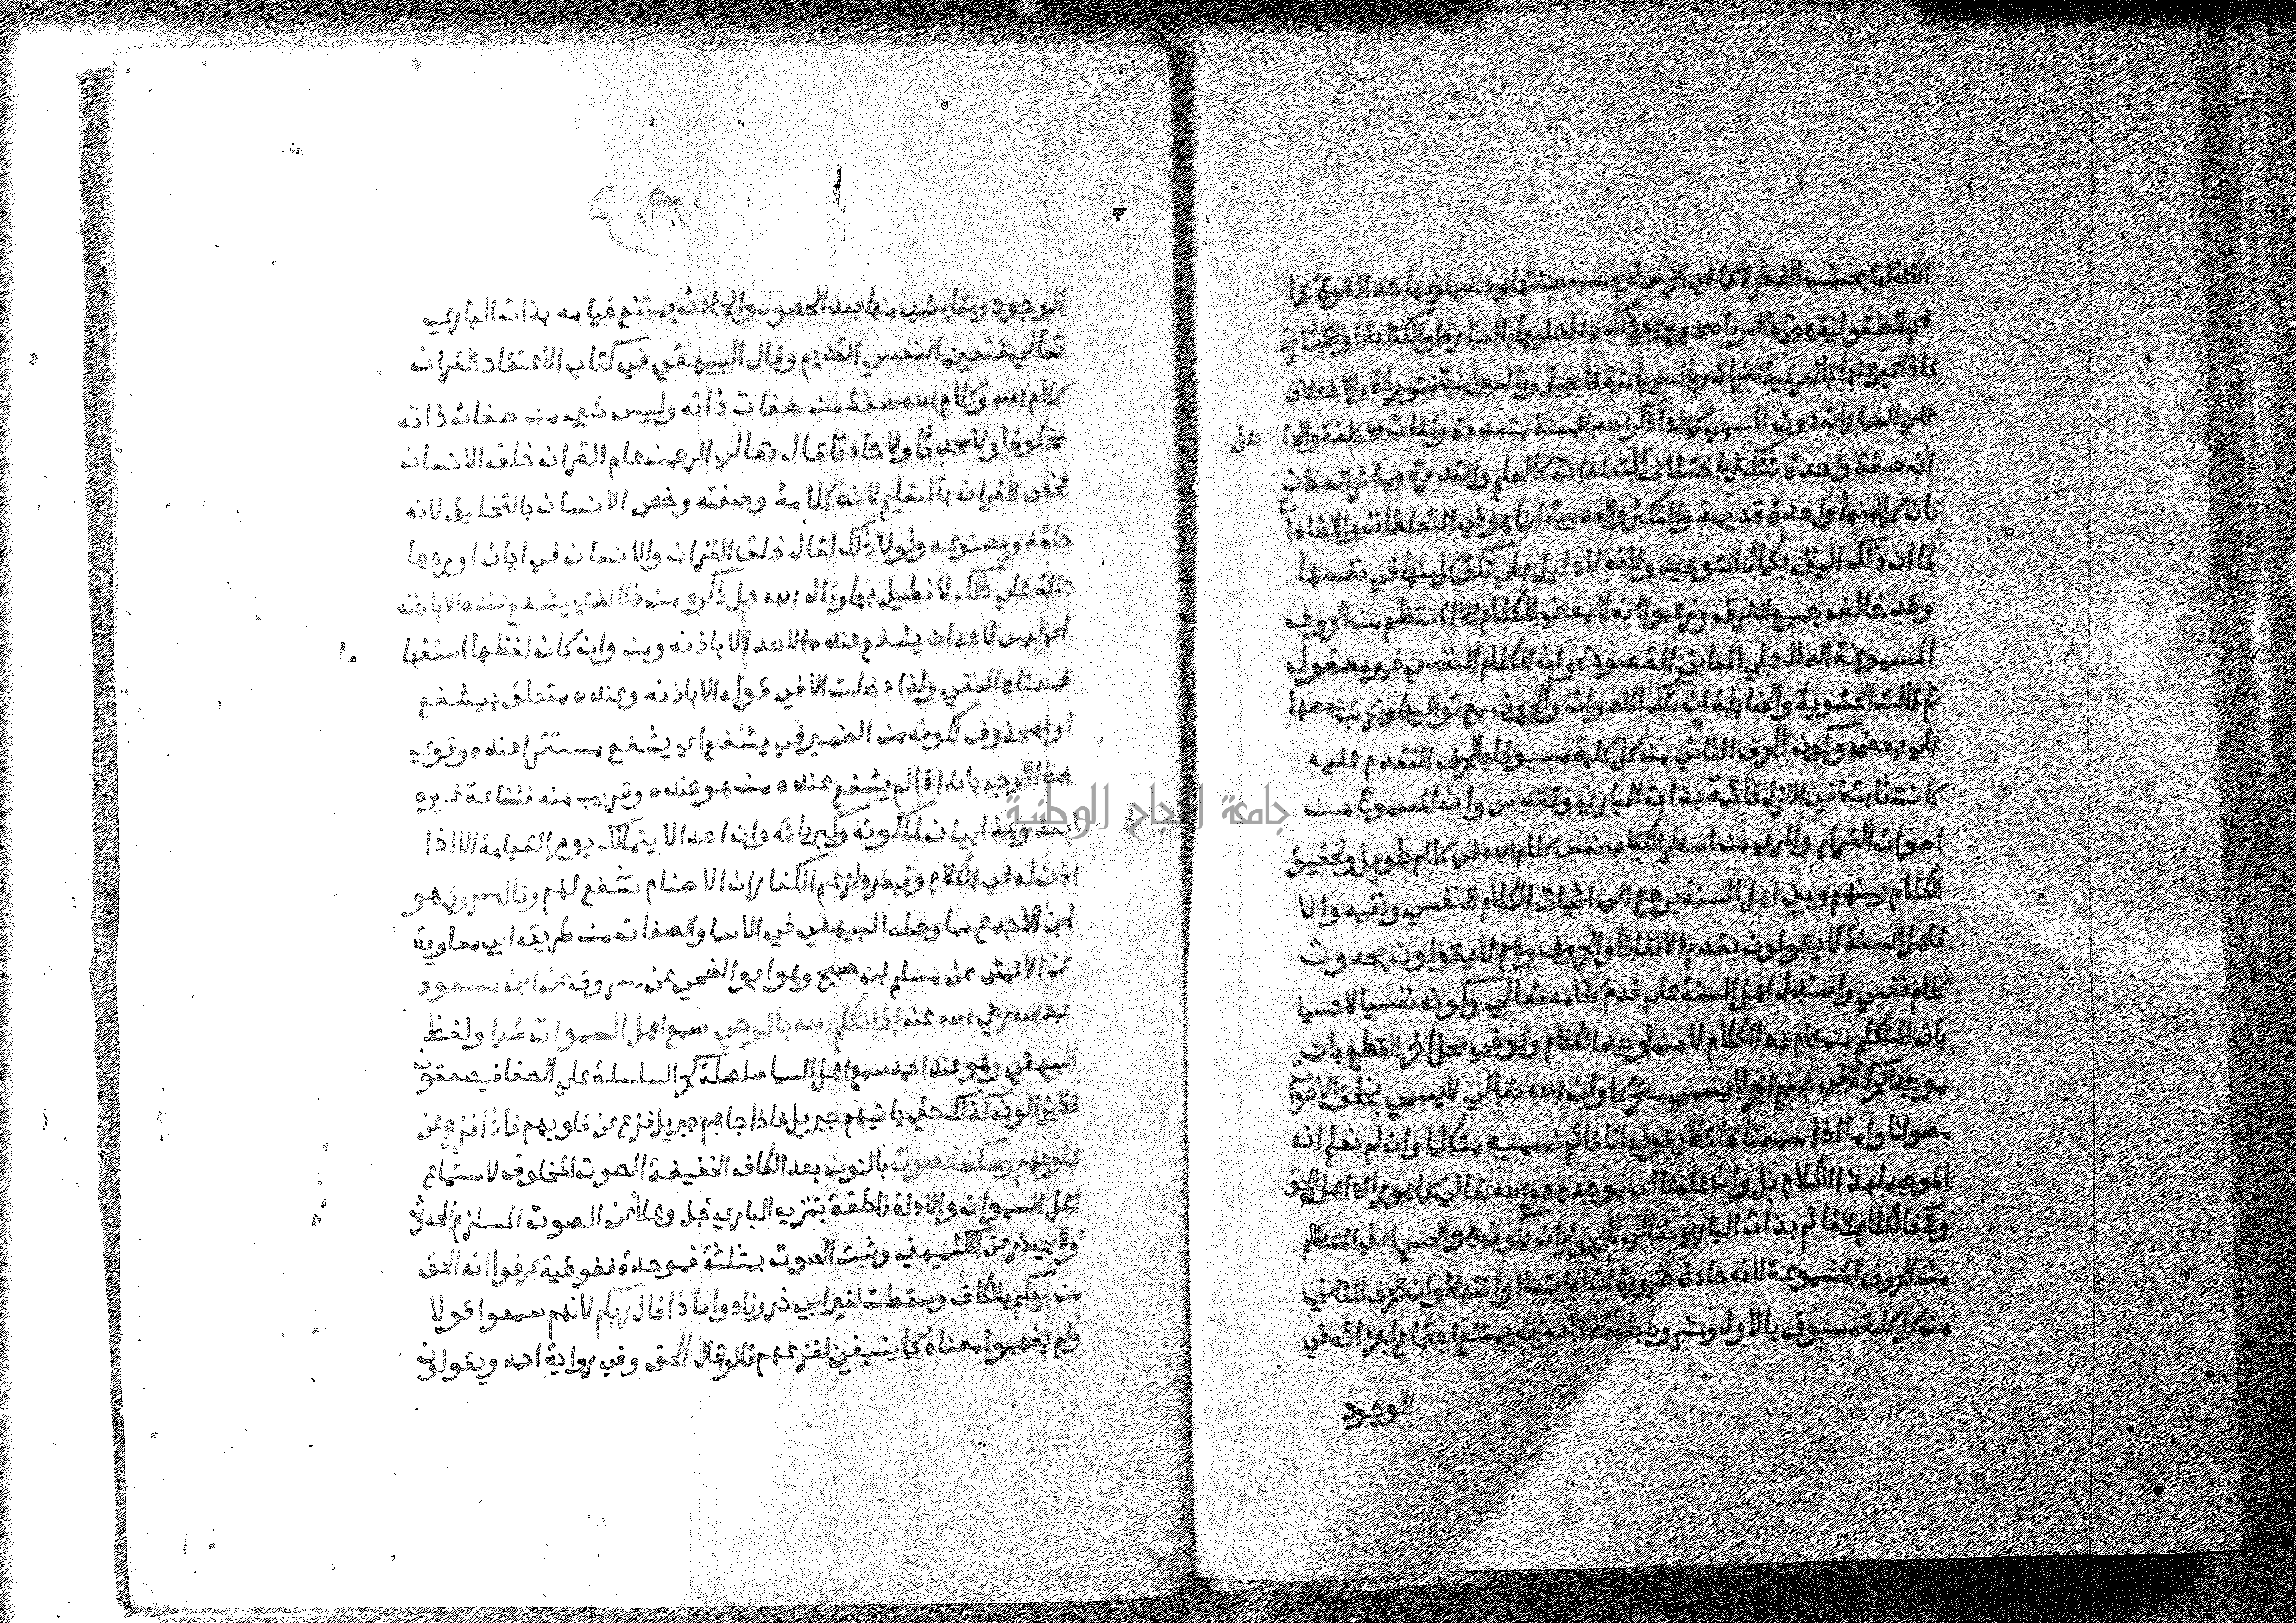 الالة اما بحسب الفطرة كما في الخرس او بحسب ضعفها وعدم بلوغها حد القوة كما
في الطفولية هو بها امر ناه مخبر وغير ذلك يدل عليها بالعبارة او الكتابة او الاشارة
فاذا عبر عنها بالعربية فقران وبالسريانية فانجيل وبالعبرانية فتوراة والاختلاف
علي العبارات دون المسمي كما اذا ذكر الله بالسنة متعددة ولغات مختلفة والحا
صل
انه صفة واحدة تتكثر باختلاف التعلقات كالعلم والقدرة وسائر الصفات
فان كلا منها واحدة قديمة والتكثر والحدوث انما هو في التعلقات والاضافات
لما ان ذلك اليق بكمال التوحيد ولانه لا دليل علي تكثر كل منها في نفسها
وقد خالف جميع الفرق وزعموا انه لا معني للكلام الا المنتظم من الحروف
المسموعة الدال علي المعاني المقصودة وان الكلام النفسي غير معقول
ثم قالت الحشوية والحنابلة ان تلك الاصوات والحروف مع تواليها وترتب بعضها
علي بعض وكون الحرف الثاني من كل كلمة مسبوقا بالحرف المتقدم عليه
كانت ثابتة في الازل قائمة بذات الباري وتقدس وان المسموع من
اصوات القراء والمري من اسطر الكتاب نفس كلام الله في كلام طويل وتحقيق
الكلام بينهم وبين اهل السنة يرجع الي اثبات الكلام النفسي ونفيه والا
فاهل السنة لا يقولون بقدم الالفاظ والحروف وهم لا يقولون بحدوث
كلام نفسي واستدل اهل السنة علي قدم كلامه تعالي وكونه نفسيا لا حسيا
بان المتكلم من قام به الكلام لا من اوجد الكلام ولو في محل اخر للقطع بان
موجد الحركة في جسم اخر لا يسمي متحركا وان الله تعالي لا يسمي بخلق الاصوات
مصوتا واما اذا سمعنا قائلا يقول انا قائم نسميه متكلما وان لم نعلم انه
الموجد لهذا الكلام بل وان علمنا ان موجده هو الله تعالي كما هو راي اهل الحق
وح فالكلام القائم بذات الباري تعالي لا يجوز ان يكون هو الحسي اعني المنتظم
من الحروف المسموعة لانه حادث ضرورة ان له ابتداء وانتهاء وان الحرف الثاني
من كل كلمة مسبوق بالاول ومشروط بانقضائه وانه يمتنع اجتماع اجزائه في
الوجود
٤١٩
الوجود وبقاء شي منها بعد الحصول والحادث يمتنع قيامه بذات الباري
تعالي فتعين النفسي القديم وقال البيهقي في كتاب الاعتقاد القران
كلام الله وكلام الله صفة من صفات ذاته وليس شي من صفات ذاته
مخلوقا ولا محدثا ولا حادثا قال تعالي الرحمن علم القران خلق الانسان
فخص القران بالتعليم لانه كلامه وصفته وخص الانسان بالتخليق لانه
خلقه ومصنوعه ولولا ذلك لقال خلق القران والانسان في ايات اوردها
دالة علي ذلك لا نطيل بها وقال الله جل ذكره من ذا الذي يشفع عنده الا باذنه
اي ليس لاحد ان يشفع عنده لاحد الا باذنه ومن وان كان لفظها استفها
ما
فمعناه النفي ولذا دخلت الا في قوله الا باذنه وعنده متعلق بيشفع
او بمحذوف لكونه من الضمير في يشفع اي يشفع مستقرا عنده وقوي
هذا الوجه بانه اذا لم يشفع عنده من هو عنده وقريب منه فشفاعة غيره
ابعد وهذا بيان لملكوته وكبريائه وان احدا لا يتمالك يوم القيامة الا اذا
اذن له في الكلام وفيه رد لزعم الكفار ان الاصنام تشفع لهم وقال مسروق هو
ابن الاجدع مما وصله البيهقي في الاسما والصفات من طريق ابي معاوية
عن الاعمش عن مسلم بن صبيح وهو ابو الضحي عن مسروق عن ابن مسعود
عبد الله رضي الله عنه اذا تكلم الله بالوحي سمع اهل السموات شيا ولفظ
البيهقي وهو عند احمد سمع اهل السما صلصلة كجر السلسلة علي الصفا فيصعقون
فلا يزالون كذلك حتي ياتيهم جبريل فاذا جاهم جبريل فزع عن قلوبهم فاذا فزع عن
قلوبهم وسكن الصوت بالنون بعد الكاف الخفيفة الصوت المخلوق لاستماع
اهل السموات والادلة ناطقة بتنزيه الباري جل وعلا عن الصوت المستلزم للحدوث
ولابي ذر عن الكشميهني وثبت الصوت بمثلثة فموحدة ففوقية عرفوا انه الحق
من ربكم بالكاف وسقطت لغير ابي ذر ونادوا ماذا قال ربكم لانهم سمعوا قولا
ولم يفهموا معناه كما ينبغي لفزعهم قالوا قال الحق وفي رواية احمد ويقولون
جامعة النجاح الوطنية